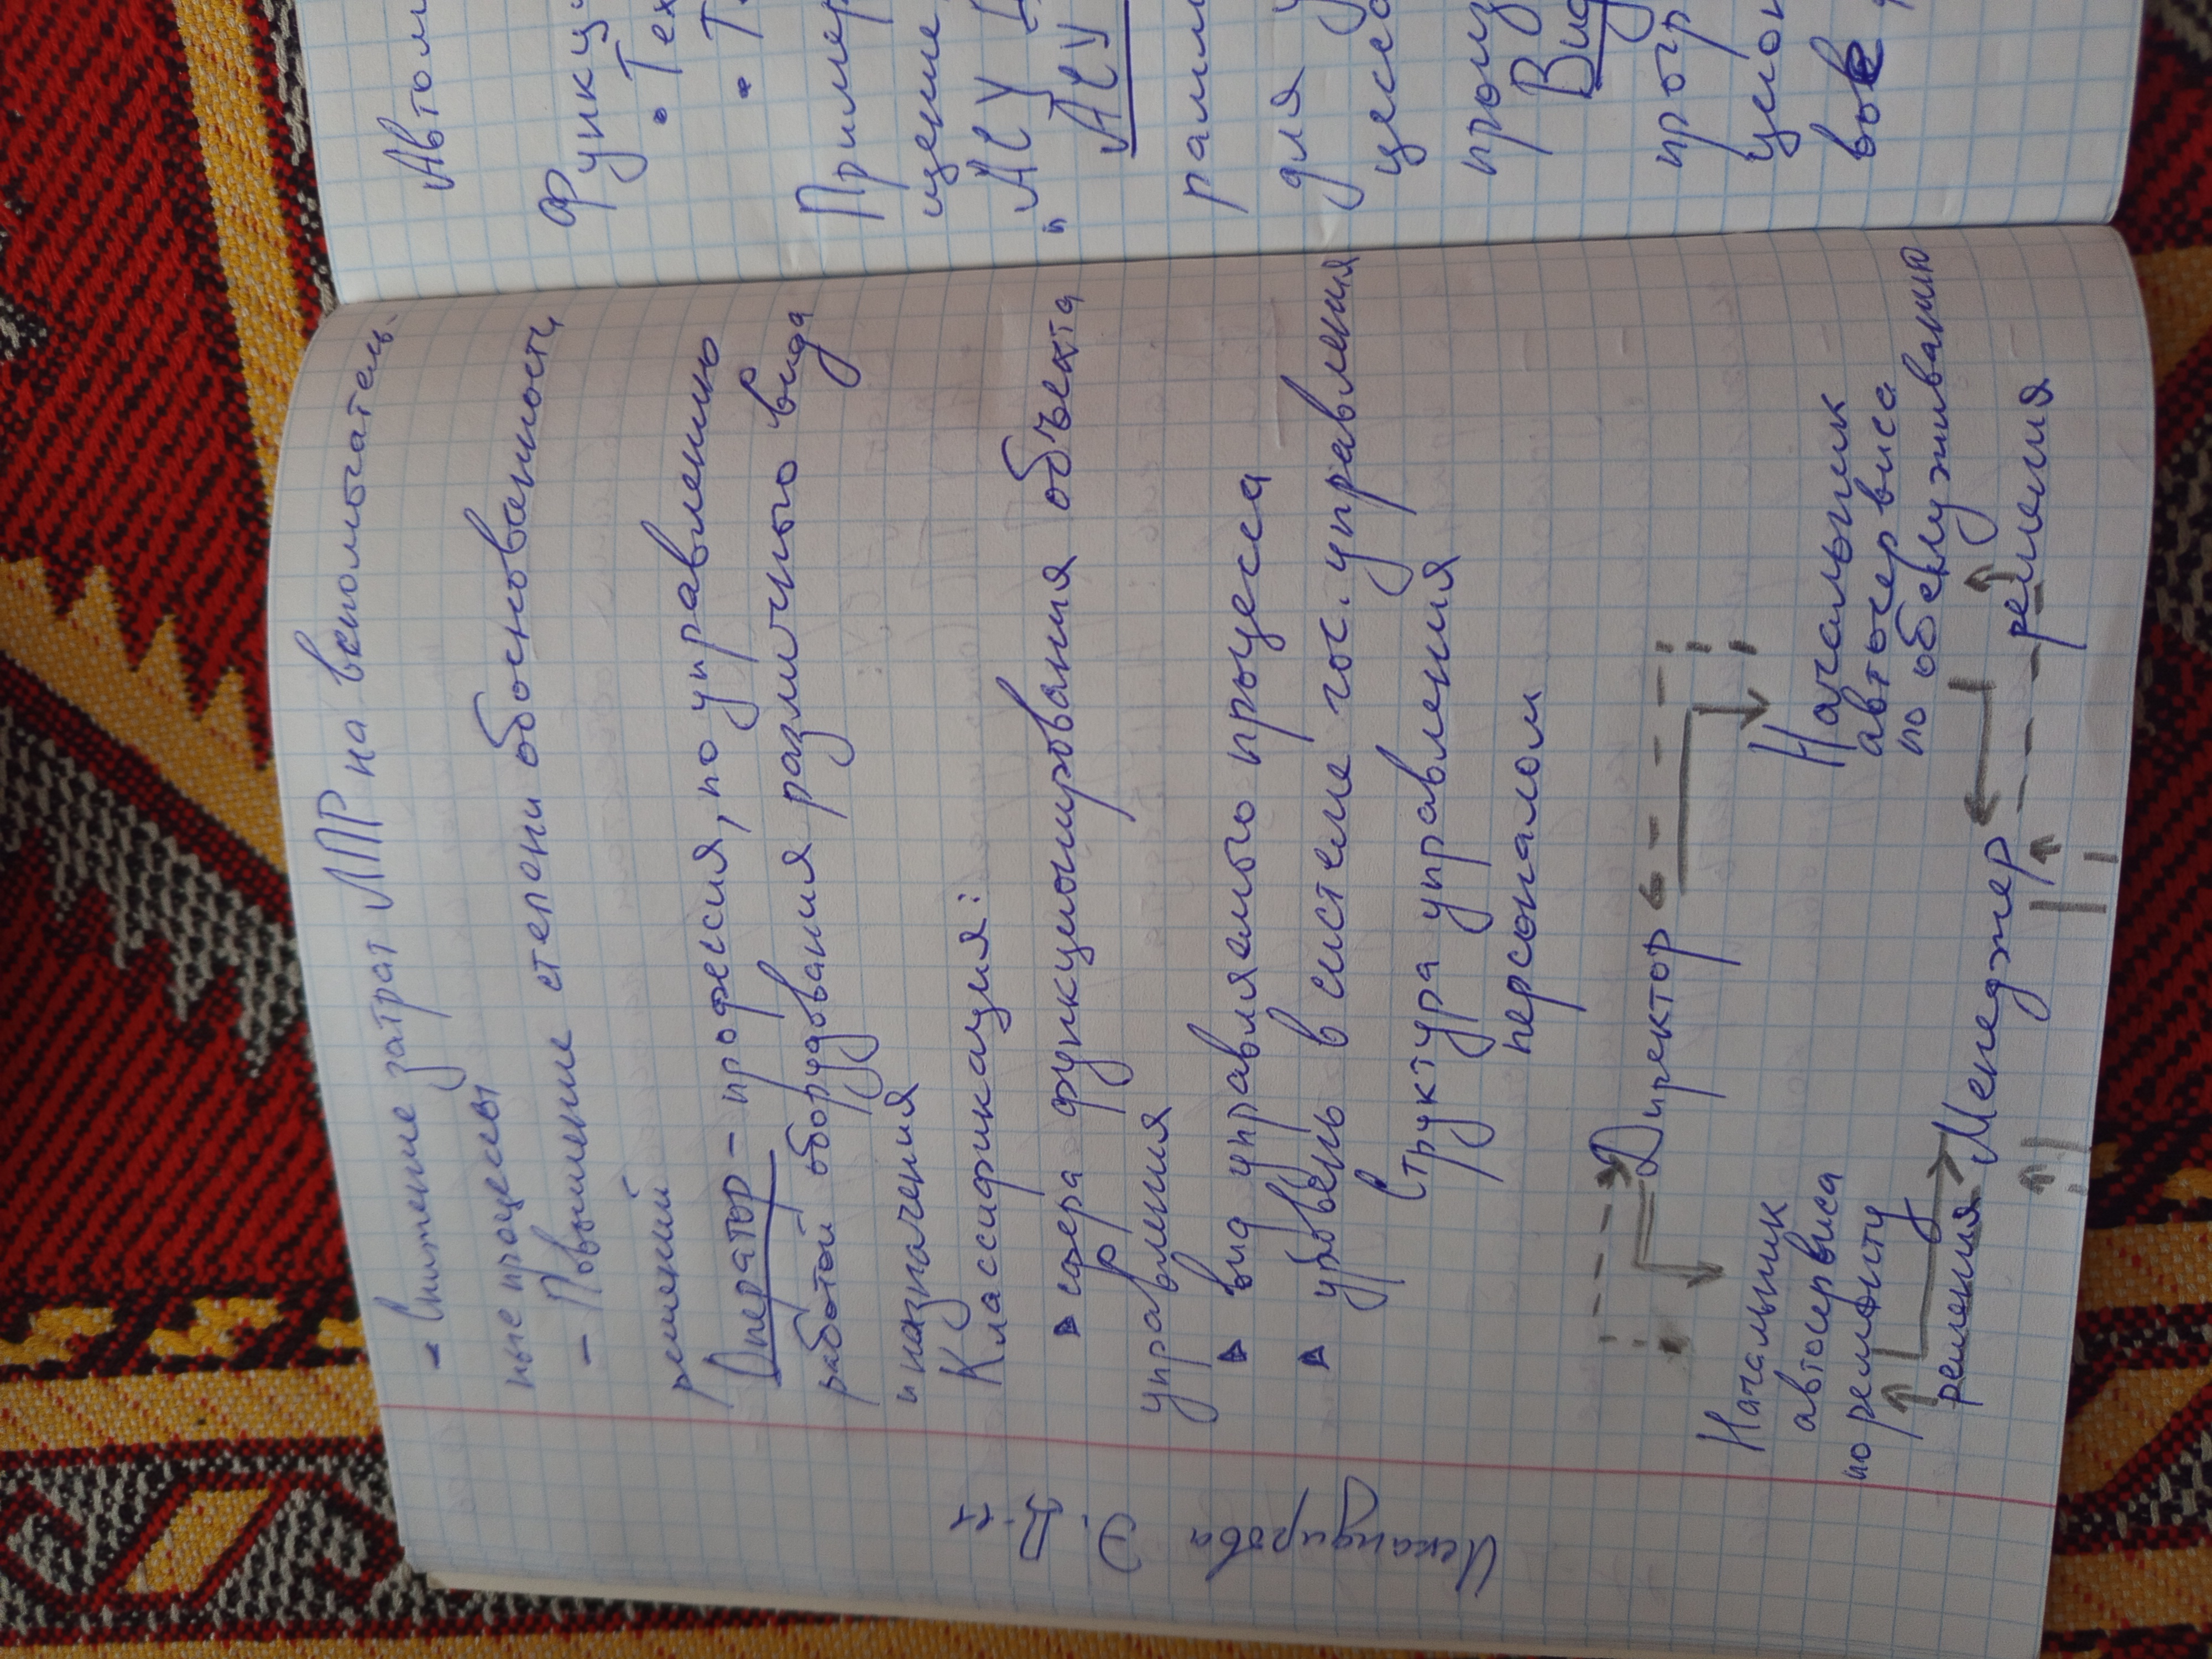 - Снижение затрат ЛПР на вспомогатель-
ные процессы
- Повышение степени обоснованности
решений
Оператор - профессия, по управлению
работой оборудования различного вида
и назначения
Классификация:
сфера функционирования объекта
управления
вид управляемого процесса
уровень в системе гос. управления
Структура управления
персоналом
Директор
Начальник
автосервиса
по ремонту
Начальник
автосервиса
по обслуживанию
решения
Менеджер
решения
Искандирова
Э.
Автом
Функци
• Тех
• Т
Пример
щение
"АСУ
"АСУ
рамм
для у
цесс
произ
Вид
прогр
цион
вые